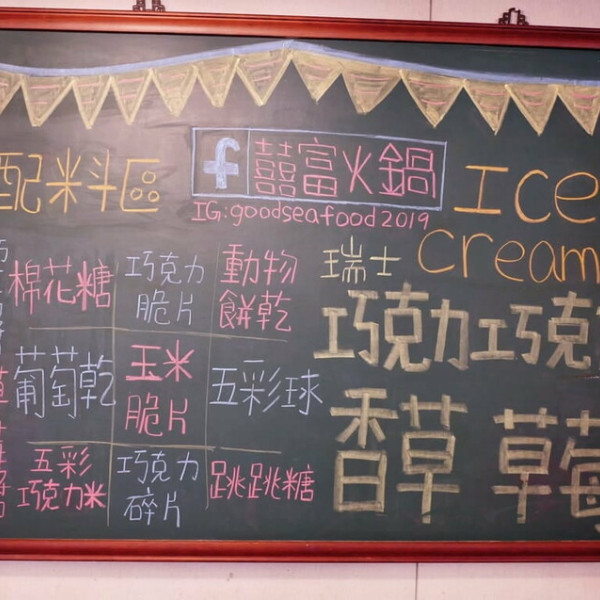 f 囍富火鍋
IG:goodseafood2019
配料區
棉花糖 巧克力脆片 動物餅乾
葡萄乾 玉米脆片 五彩球
五彩巧克力米 巧克力碎片 跳跳糖
Ice
Cream
瑞士
巧克力 巧克
香草 草莓